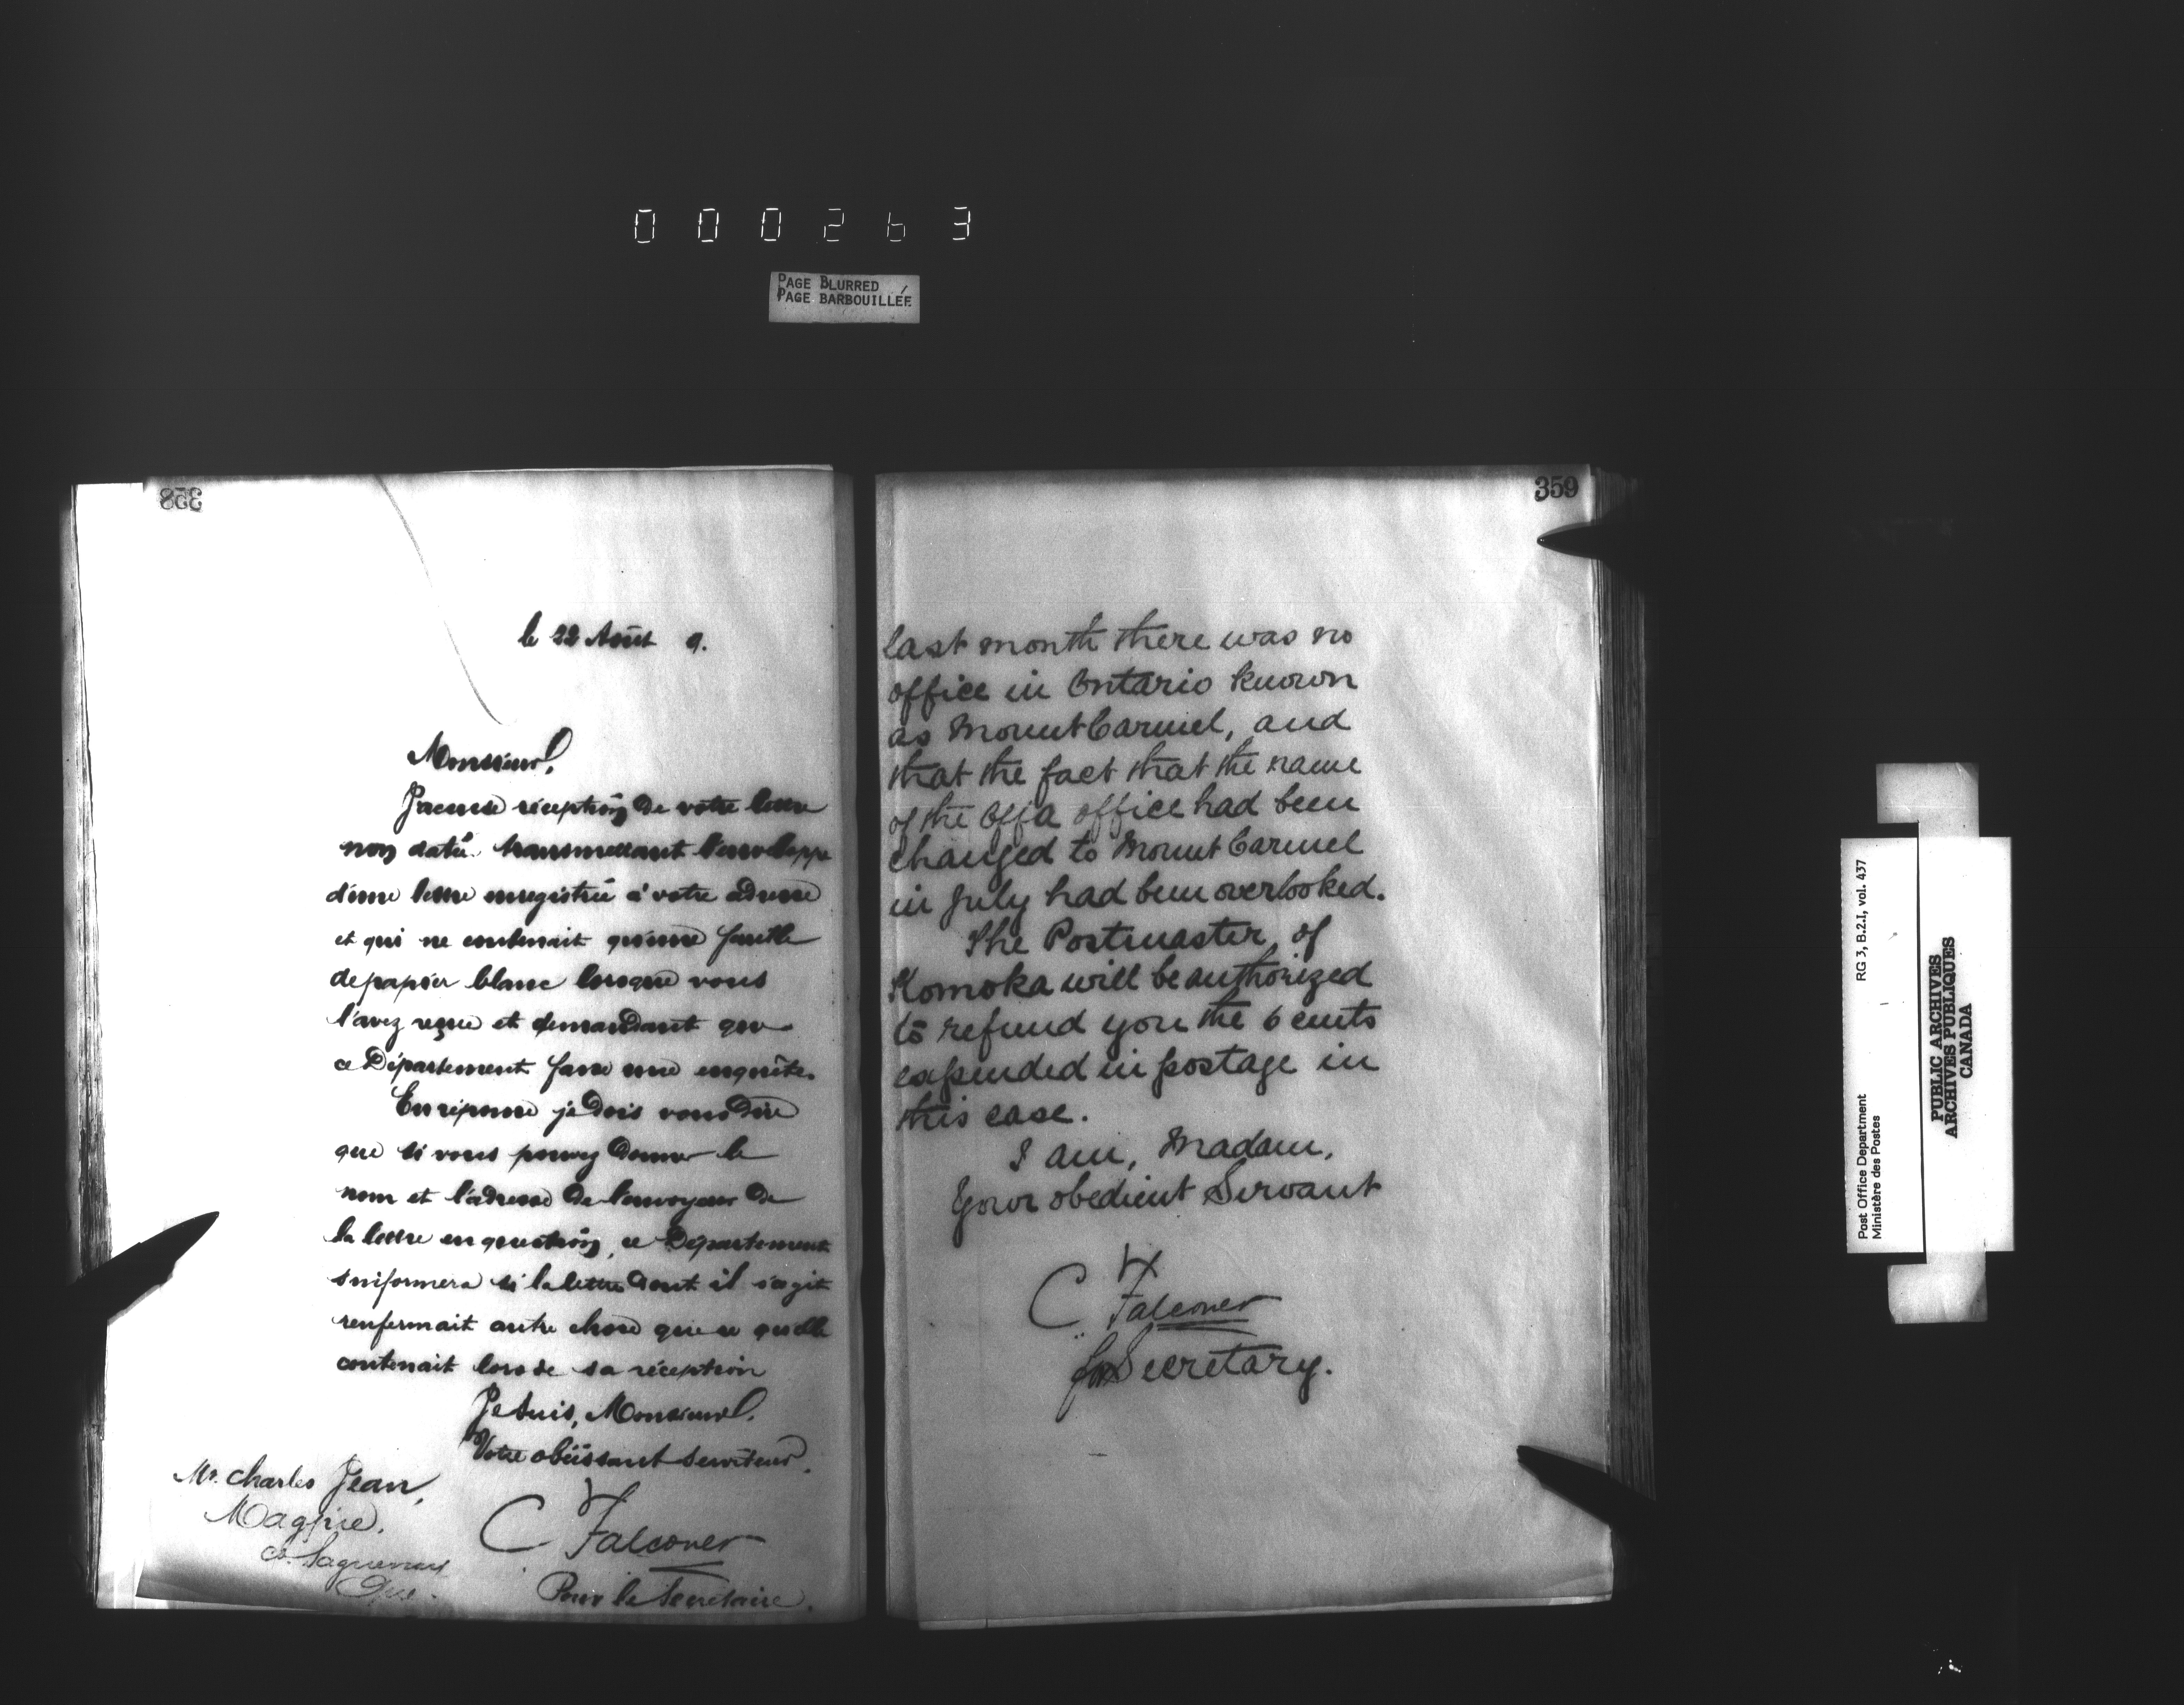 000263
PAGE BLURRED
PAGE BARBOUILLÉE
358
le 22 Août 9.
Monsieur,
J'accuse réception de votre lettre
non datée transmettant l'enveloppe
d'une lettre enregistrée à votre adresse
et qui ne contenait qu'une feuille
de papier blanc lorsque vous
l'avez reçue et demandant que
ce Département fasse une enquête.
En réponse je dois vous dire
que si vous pouvez donner le
nom et l'adresse de l'envoyeur de
la lettre en question, ce Département
s'informera si la lettre dont il s'agit
renfermait autre chose que ce qu'elle
contenait lors de sa réception
Je suis, Monsieur,
Votre obéissant serviteur,
C Falconer
Pour le Secrétaire.
Mr. Charles Jean,
Magpie,
Co. Saguenay
Que.
359
last month there was no
office in Ontario known
as Mount Carmel, and
that the fact that the name
of the Offa office had been
changed to Mount Carmel
in July had been overlooked.
The Postmaster of
Komoka will be authorized
to refund you the 6 cents
expended in postage in
this case.
I am, Madam,
Your obedient Servant
C Falconer
for Secretary.
Post Office Department
Ministère des Postes
RG 3, B.2.I, vol. 437
PUBLIC ARCHIVES
ARCHIVES PUBLIQUES
CANADA